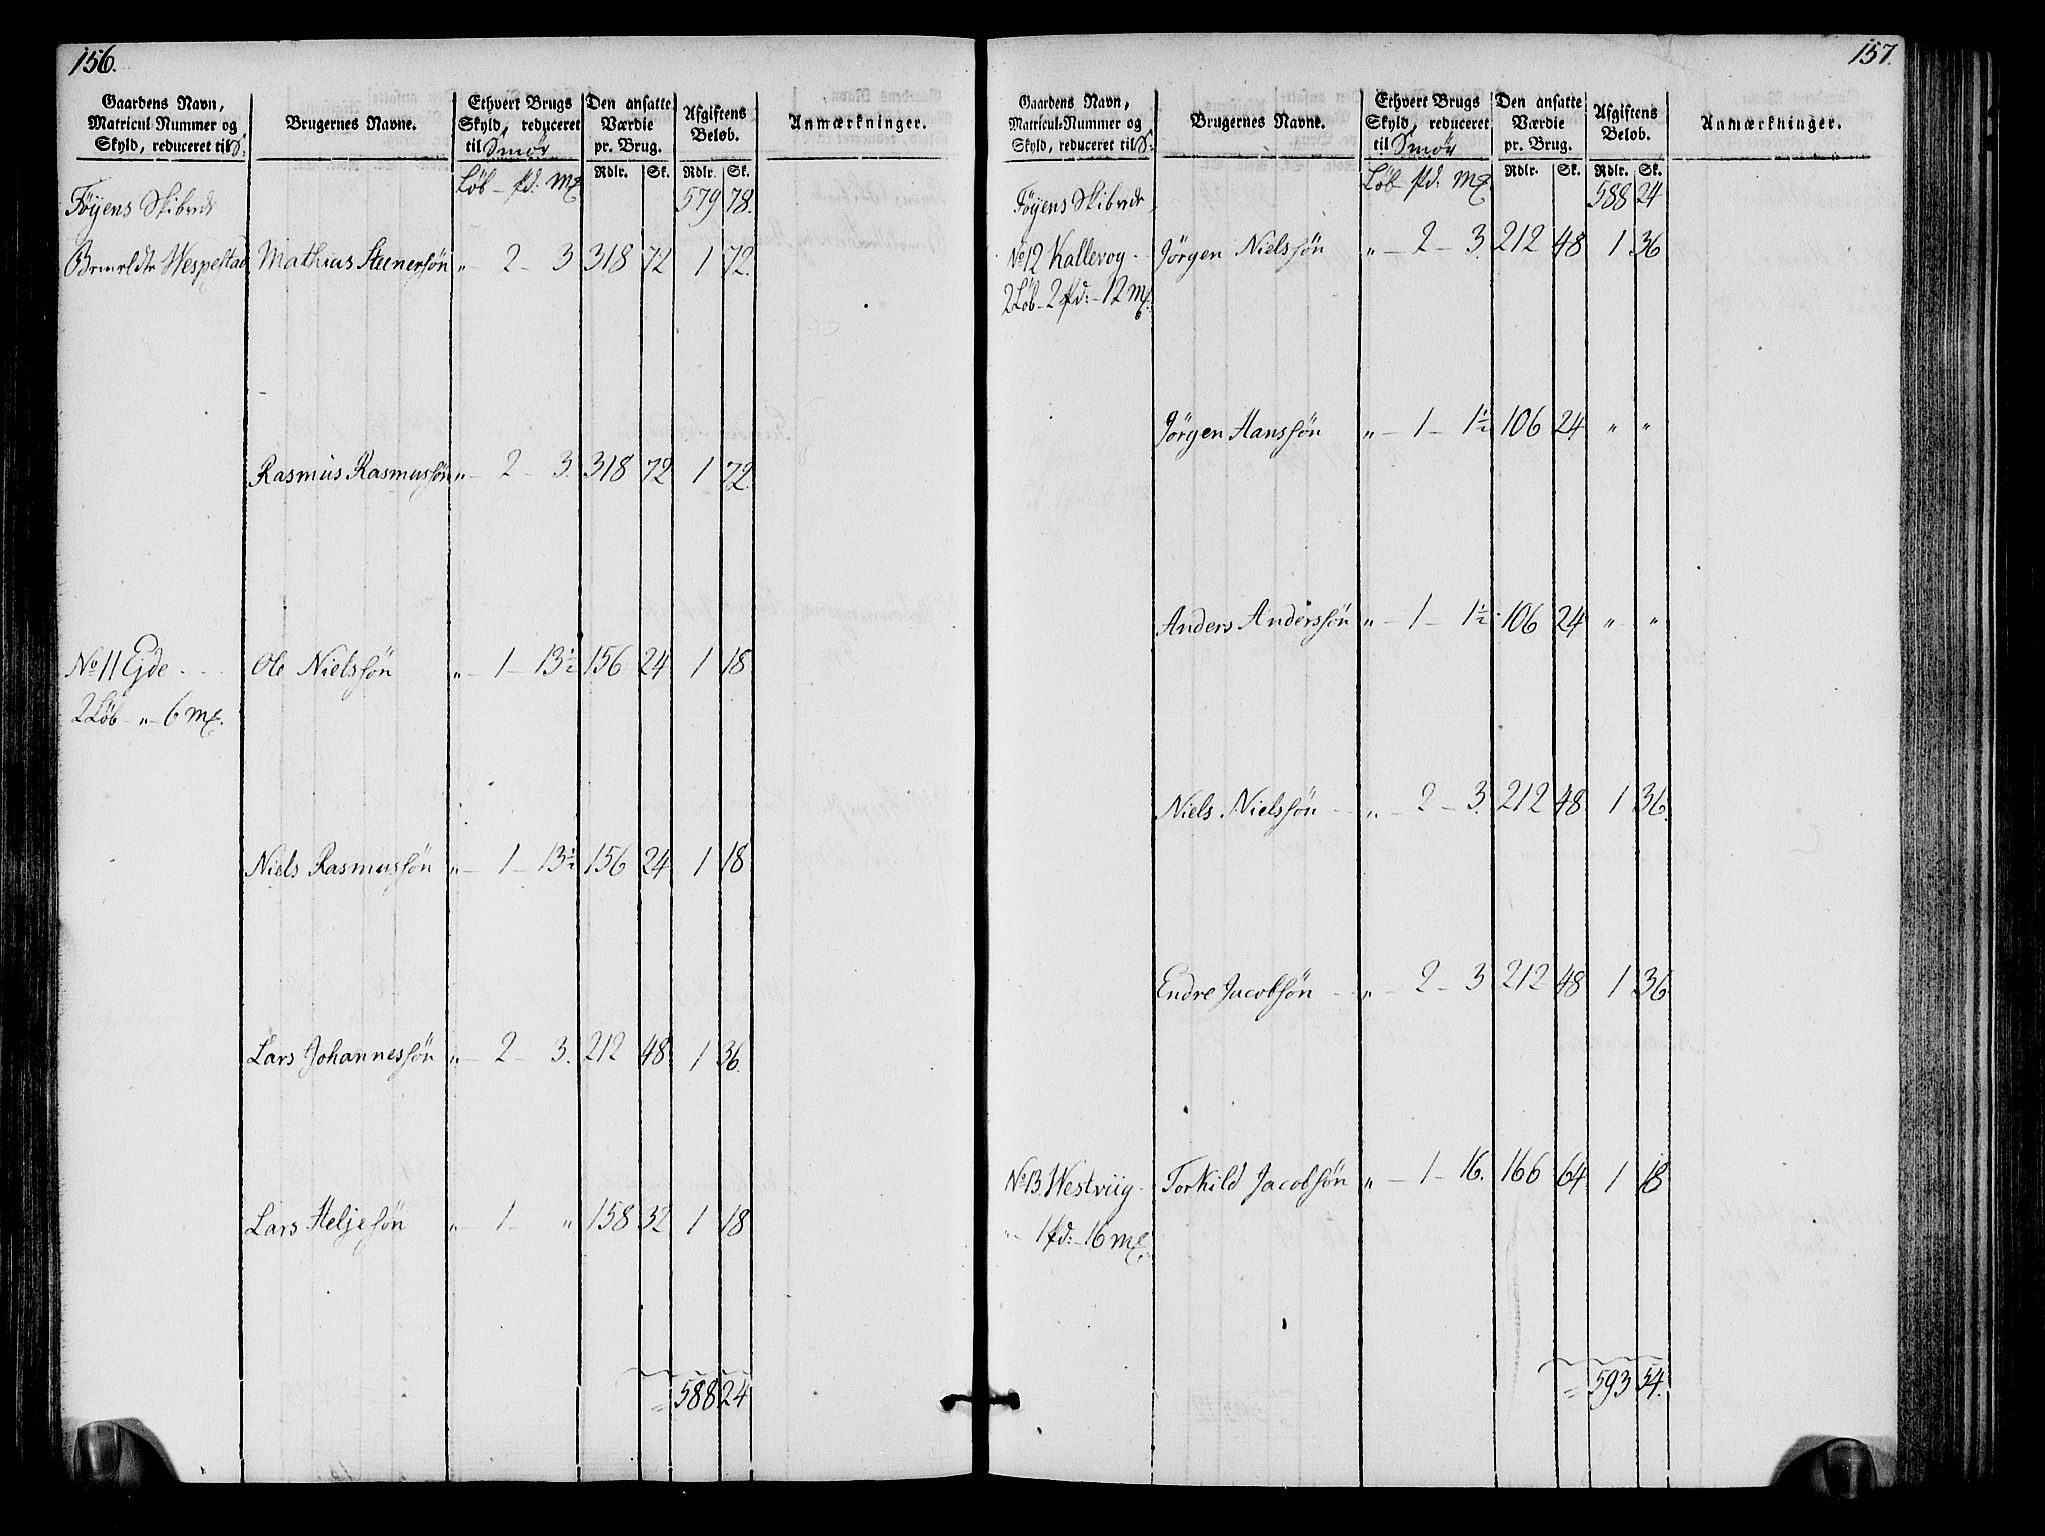 156.
Gaardens Navn, Matricul-Nummer og Skyld, reduceret til S: | Brugernes Navne. | Ethvert Brugs Skyld, reduceret til Smør | Den ansatte Værdie pr. Brug. | Afgiftens Beløb. | Anmærkninger.
Løb - pd: - mk | Rdlr. | Sk. | Rdlr. | Sk.
Føyens Skibrede 579 78.
Wespestad Mathias Steenersøn „ - 2 - 3 318 72 1 72.
Rasmus Rasmussøn „ - 2 - 3. 318 72 1 72.
No 11 Ejde Ole Nielssøn „ - 1 - 13½ 156 24 1 18
2 Løb - „ - 6 mk.
Niels Rasmussøn „ - 1 - 13½ 156 24 1 18
Lars Johannessøn „ - 2 - 3. 212 48 1 36.
Lars Heljesøn „ - 1 - „ 158 32 1 18
588 24
157.
Gaardens Navn, Matricul-Nummer og Skyld, reduceret til S: | Brugernes Navne. | Ethvert Brugs Skyld, reduceret til Smør | Den ansatte Værdie pr. Brug. | Afgiftens Beløb. | Anmærkninger.
Løb - pd: - mk | Rdlr. | Sk. | Rdlr. | Sk.
Føyens Skibrede 588 24
No 12 Kallevog Jørgen Nielssøn „ - 2 - 3. 212 48 1 36
2 Løb - 2 pd: - 12 mk.
Jørgen Hanssøn „ - 1 - 1½ 106 24 „ „
Anders Anderssøn „ - 1 - 1½ 106 24 „ „
Niels Nielssøn „ - 2 - 3. 212 48 1 36.
Endre Jacobsøn „ - 2 - 3 212 48 1 36
No 13. Westviig Torkild Jacobsøn „ - 1 - 16. 166 64 1 18
„ - 1 pd: - 16 mk.
593 54.